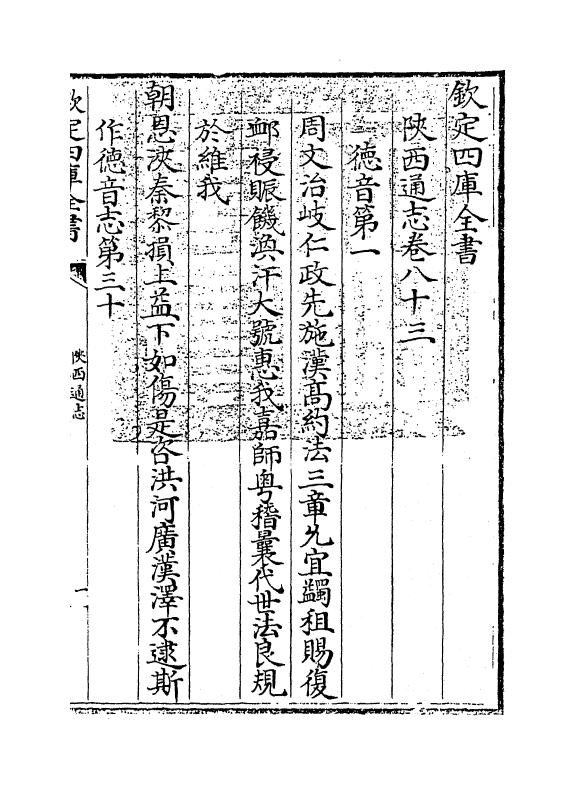 欽定四庫全書
陜西通志卷八十三
德音第一
周文治岐仁政先施漢髙約法三章允宜蠲租賜復
䘏祲賑饑渙汗大號惠我嘉師粤稽曩代世法良規
於維我
朝恩浹秦黎損上益下如傷是咨洪河廣漢澤不逮斯
作德音志第三十
欽定四庫全書
陜西通志
一